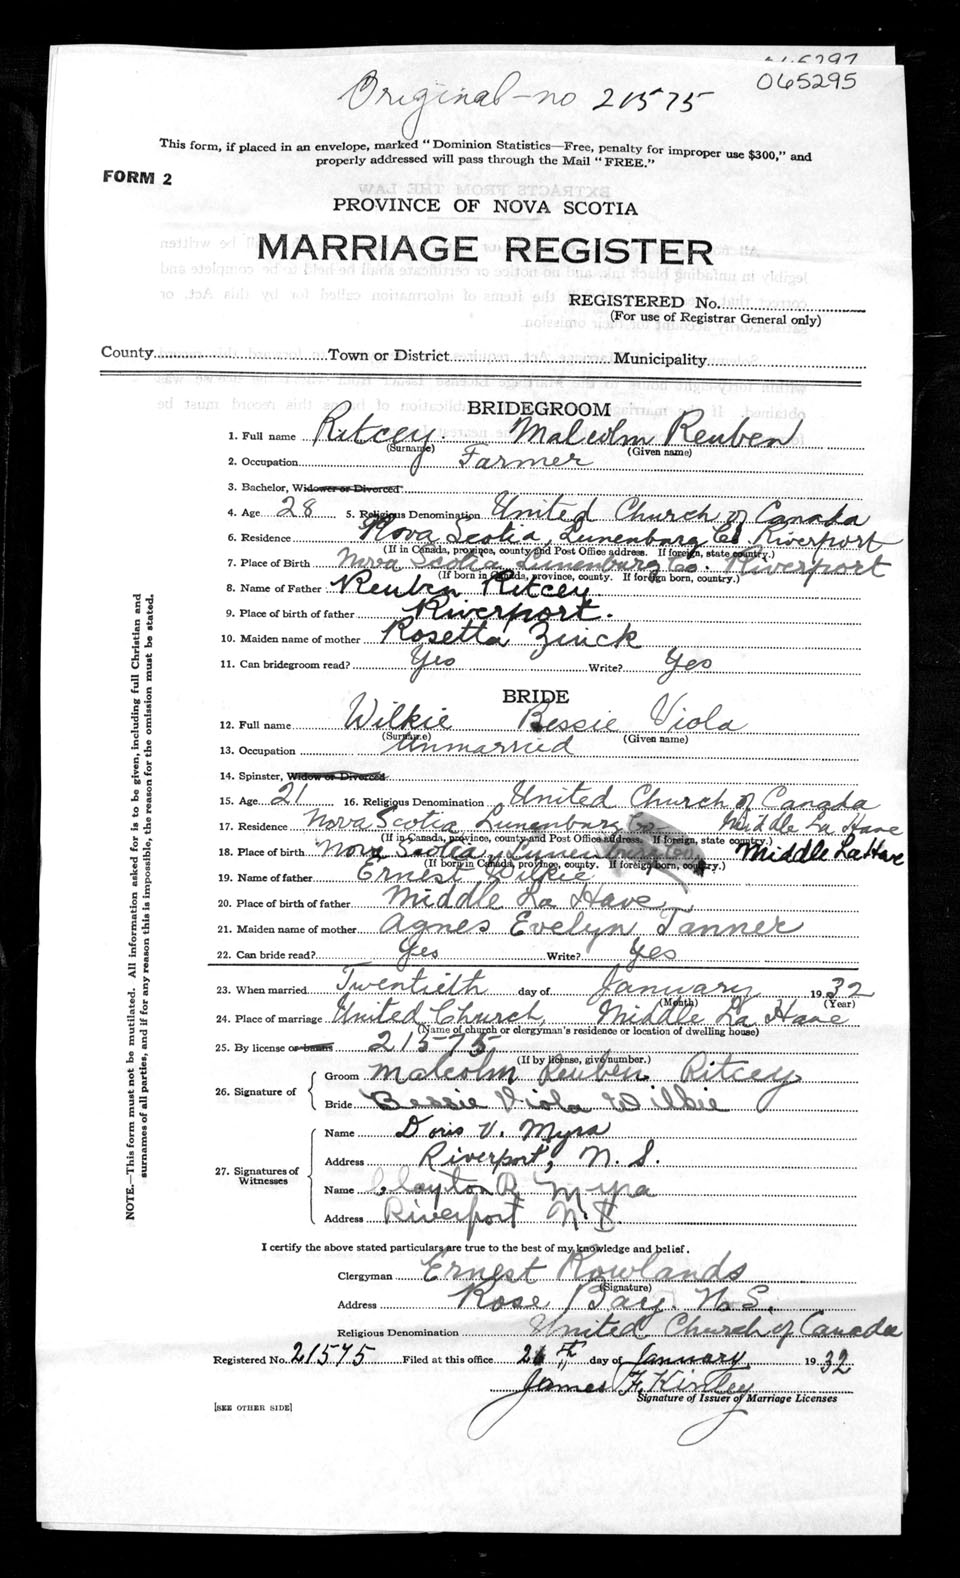 065297
065295
Original - no 21575
This form, if placed in an envelope, marked "Dominion Statistics—Free, penalty for improper use $300," and
properly addressed will pass through the Mail "FREE."
FORM 2
PROVINCE OF NOVA SCOTIA
MARRIAGE REGISTER
REGISTERED No.
(For use of Registrar General only)
County Town or District Municipality
BRIDEGROOM
1. Full name Ritcey. Malcolm Reuben
(Surname) (Given name)
2. Occupation Farmer
3. Bachelor, Widower or Divorced
4. Age 28 5. Religious Denomination United Church of Canada
6. Residence Nova Scotia, Lunenburg Co Riverport
(If in Canada, province, county and Post Office address. If foreign, state country.)
7. Place of Birth Nova Scotia Lunenburg Co. Riverport
(If born in Canada, province, county. If foreign born, country.)
8. Name of Father Reuben Ritcey
9. Place of birth of father Riverport.
10. Maiden name of mother Rosetta Zinck
11. Can bridegroom read? Yes Write? Yes
BRIDE
12. Full name Wilkie Bessie Viola
(Surname) (Given name)
13. Occupation Unmarried
14. Spinster, Widow or Divorced
15. Age 21 16. Religious Denomination United Church of Canada
17. Residence Nova Scotia Lunenburg Co Middle La Have
(If in Canada, province, county and Post Office address. If foreign, state country.)
18. Place of birth Nova Scotia, Lunenburg Middle La Have
(If born in Canada, province, county. If foreign born, country.)
19. Name of father Ernest Wilkie
20. Place of birth of father Middle La Have
21. Maiden name of mother Agnes Evelyn Tanner
22. Can bride read? Yes Write? Yes
23. When married Twentieth day of January 1932
(Month) (Year)
24. Place of marriage United Church, Middle La Have
(Name of church or clergyman's residence or location of dwelling house)
25. By license or banns 21575
(If by license, give number.)
26. Signature of Groom Malcolm Reuben Ritcey
Bride Bessie Viola Wilkie
27. Signatures of Witnesses Name Doris V. Myra
Address Riverport, N. S.
Name Clayton R Myra
Address Riverport N. S.
I certify the above stated particulars are true to the best of my knowledge and belief.
Clergyman Ernest Rowlands
(Signature)
Address Rose Bay. N.S.
Religious Denomination United Church of Canada
Registered No. 21575 Filed at this office 26th day of January 1932
James F. Kinley
Signature of Issuer of Marriage Licenses
[SEE OTHER SIDE]
NOTE.—This form must not be mutilated. All information asked for is to be given, including full Christian and
surnames of all parties, and if for any reason this is impossible, the reason for the omission must be stated.